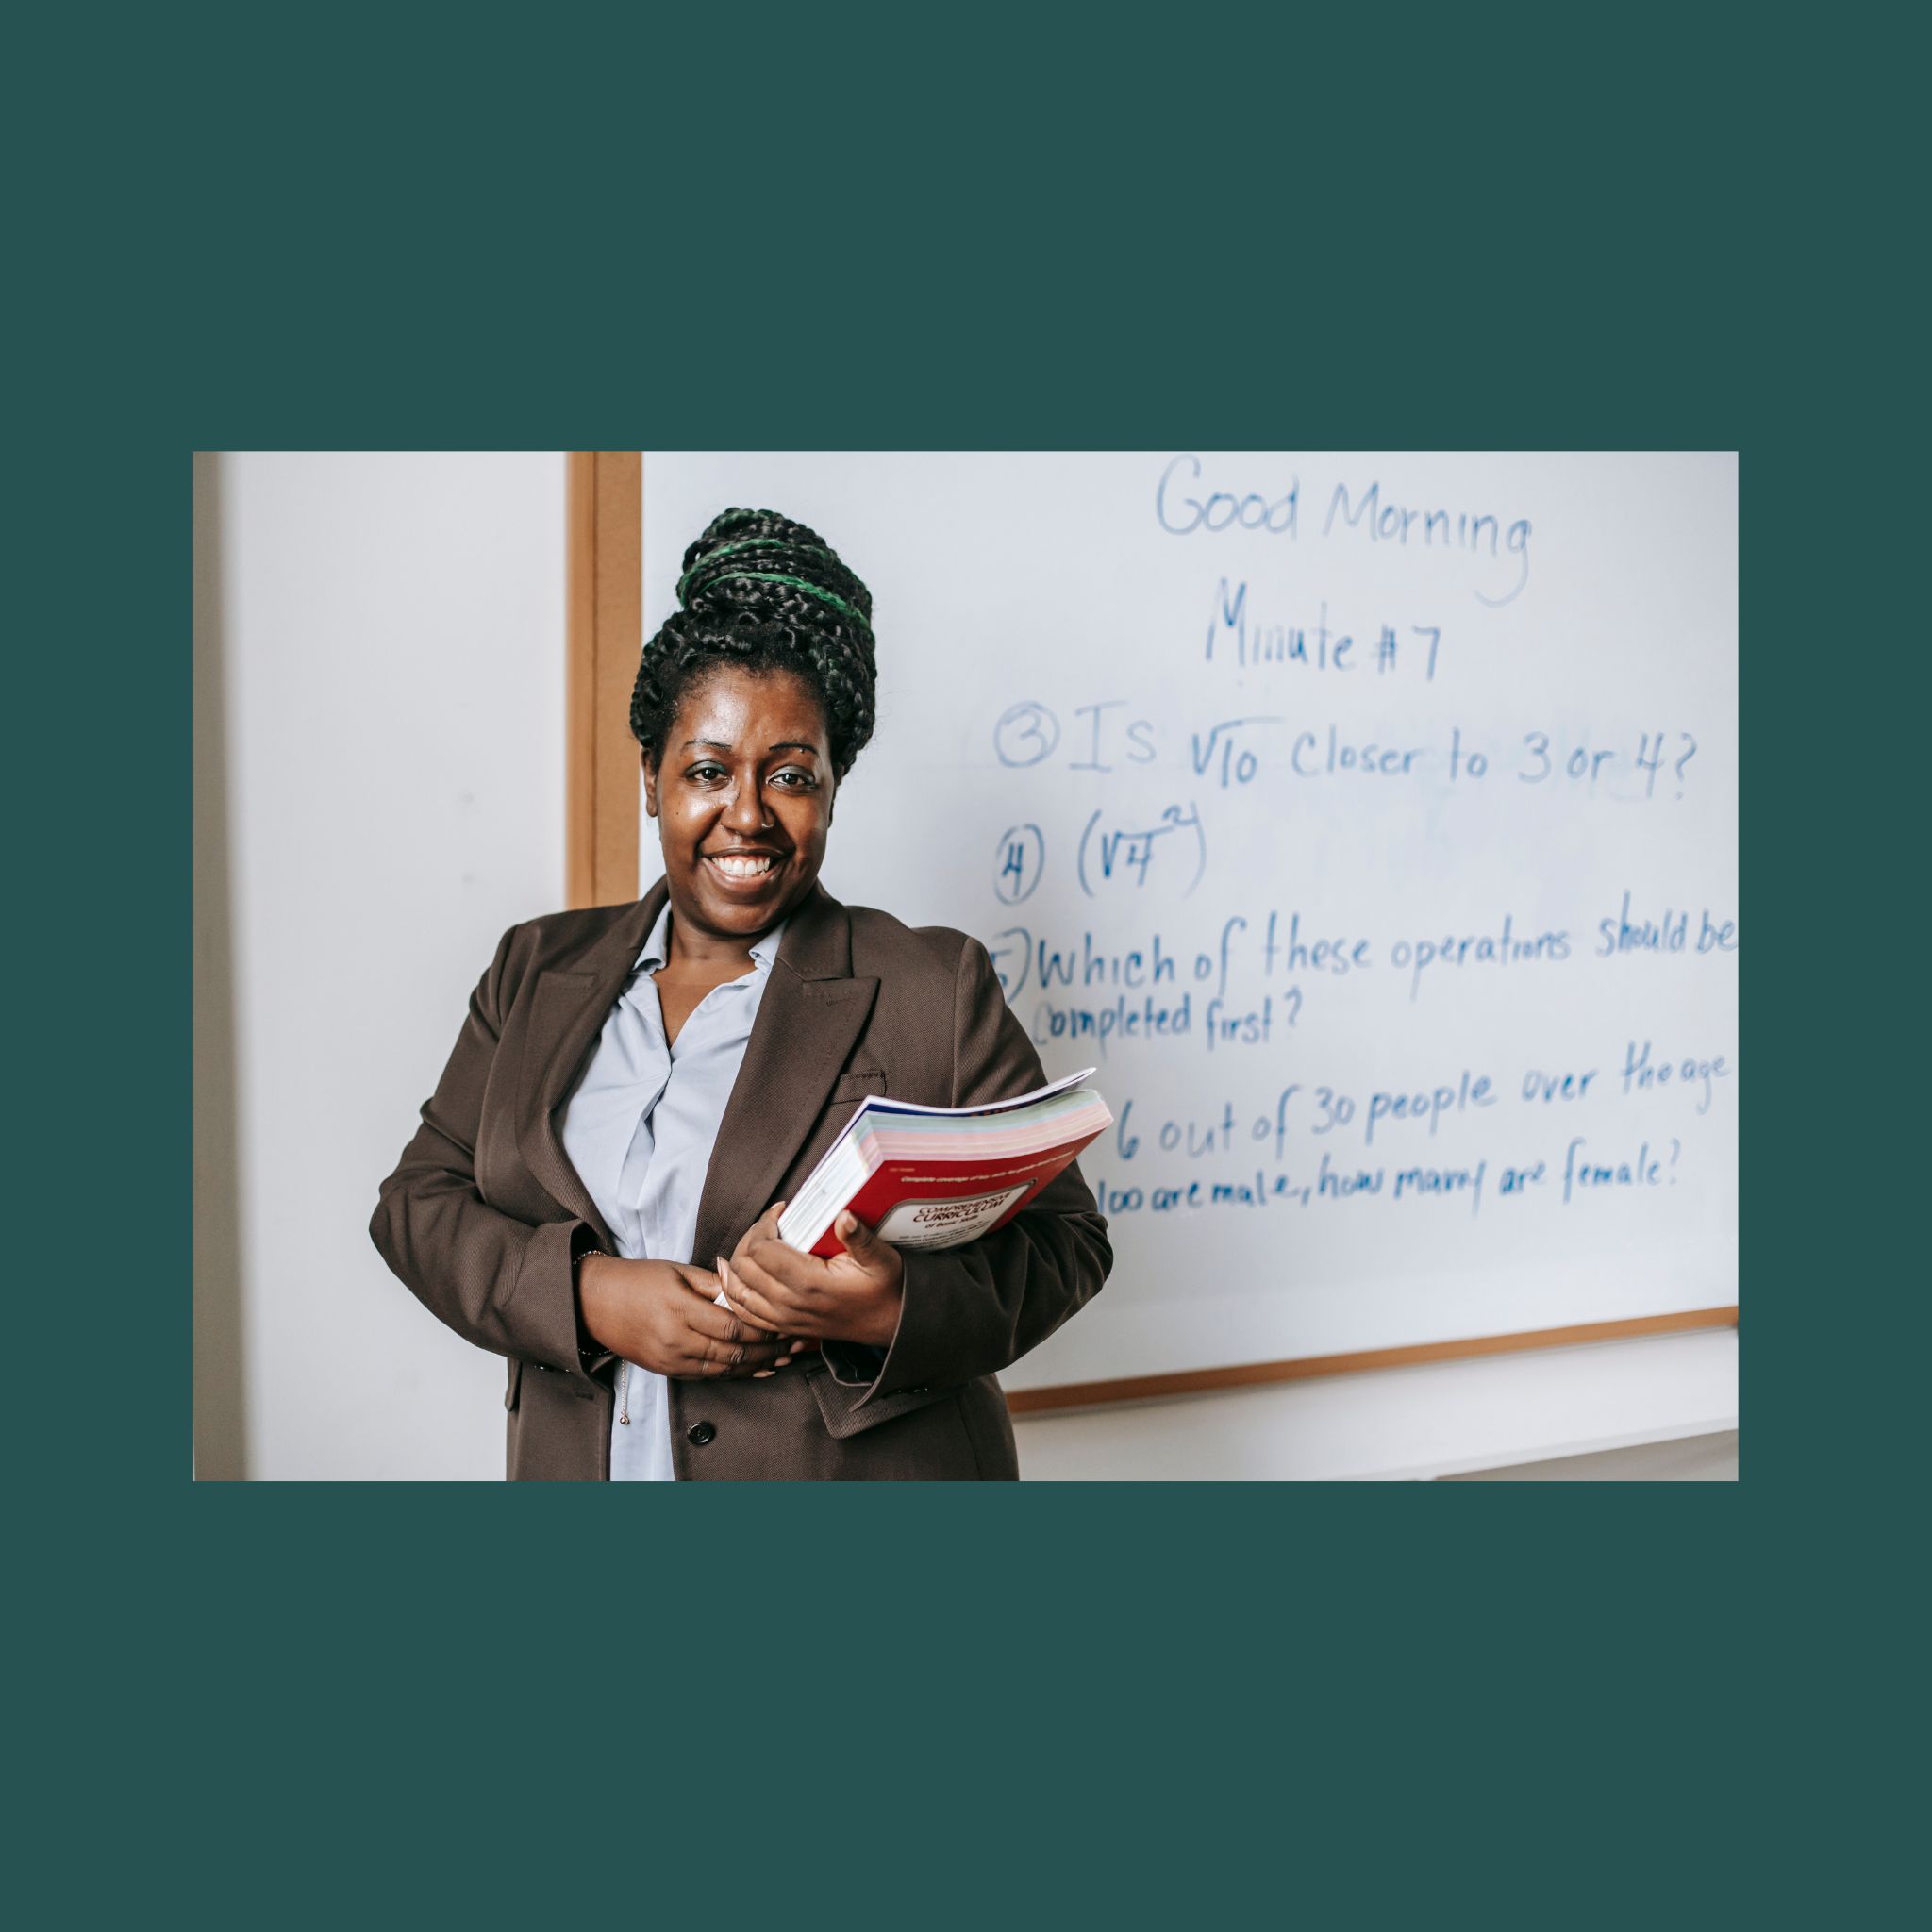 Good Morning
Minute #7
③ Is √10 closer to 3 or 4?
④ (√4²)
5) Which of these operations should be
completed first?
6 out of 30 people over the age
100 are male, how many are female?
Complete coverage of
COMPREHENSIVE
CURRICULUM
of Basic Skills